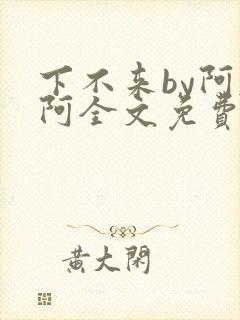 下不来by阿
阿全文免费
黄大闲